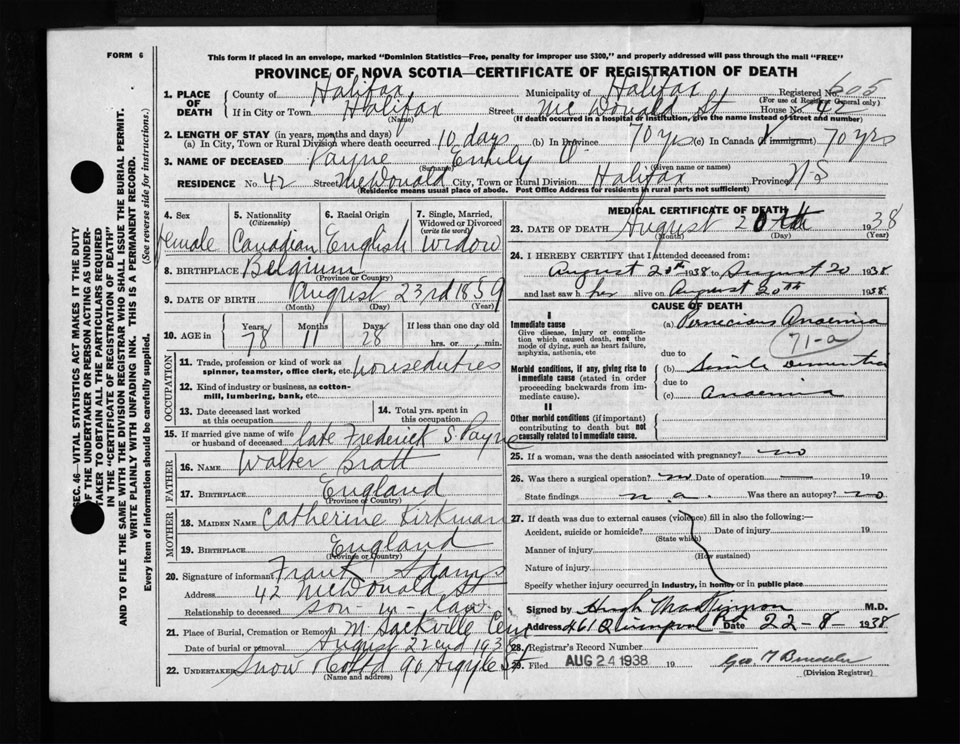 FORM 6
This form if placed in an envelope, marked "Dominion Statistics—Free, penalty for improper use $300," and properly addressed will pass through the mail "FREE"
PROVINCE OF NOVA SCOTIA—CERTIFICATE OF REGISTRATION OF DEATH
1. PLACE OF DEATH County of Halifax Municipality of Halifax Registered No. 605
(For use of Registrar General only)
If in City or Town Halifax Street McDonald St House No. 42
(Name) (If death occurred in a hospital or institution, give the name instead of street and number)
2. LENGTH OF STAY (in years, months and days)
(a) In City, Town or Rural Division where death occurred 10 days (b) In Province 70 yrs (c) In Canada (if immigrant) 70 yrs
3. NAME OF DECEASED Payne Emily
(Surname) (Given name or names)
RESIDENCE No 42 Street McDonald City, Town or Rural Division Halifax Province NS
(Residence means usual place of abode. Post Office Address for residents in rural parts not sufficient)
4. Sex female
5. Nationality (Citizenship) Canadian
6. Racial Origin English
7. Single, Married, Widowed or Divorced (write the word) Widow
8. BIRTHPLACE Belgium
(Province or Country)
9. DATE OF BIRTH August 23rd 1859
(Month) (Day) (Year)
10. AGE in Years 78 Months 11 Days 28 If less than one day old hrs. or min.
OCCUPATION
11. Trade, profession or kind of work as spinner, teamster, office clerk, etc. houseduties
12. Kind of industry or business, as cotton-mill, lumbering, bank, etc.
13. Date deceased last worked at this occupation
14. Total yrs. spent in this occupation
15. If married give name of wife or husband of deceased late Frederick S Payne
FATHER
16. NAME Walter Bratt
17. BIRTHPLACE England
(Province or Country)
MOTHER
18. MAIDEN NAME Catherine Kirkman
19. BIRTHPLACE England
(Province or Country)
20. Signature of informant Frank Adams
Address 42 McDonald St
Relationship to deceased son-in-law
21. Place of Burial, Cremation or Removal M. Sackville Cem
Date of burial or removal August 22nd 1938
22. UNDERTAKER Snow & Co Ltd 90 Argyle St
(Name and address)
MEDICAL CERTIFICATE OF DEATH
23. DATE OF DEATH August 20th 1938
(Month) (Day) (Year)
24. I HEREBY CERTIFY that I attended deceased from:
August 20th 1938 to August 20 1938
and last saw her alive on August 20th 1938
CAUSE OF DEATH
I
Immediate cause
Give disease, injury or complication which caused death, not the mode of dying, such as heart failure, asphyxia, asthenia, etc
(a) Pernicious Anaemia
71-a
due to
Morbid conditions, if any, giving rise to immediate cause (stated in order proceeding backwards from immediate cause).
(b) Senile
due to
(c) Anaemia
II
Other morbid conditions (if important) contributing to death but not causally related to immediate cause.
25. If a woman, was the death associated with pregnancy? no
26. Was there a surgical operation? no Date of operation 19
State findings n. a. Was there an autopsy? no
27. If death was due to external causes (violence) fill in also the following:—
Accident, suicide or homicide? Date of injury 19
(State which)
Manner of injury
(How sustained)
Nature of injury
Specify whether injury occurred in industry, in home, or in public place
Signed by Hugh MacKinnon M.D.
Address 461 Quinpool Rd Date 22-8- 1938
28. Registrar's Record Number
29. Filed AUG 24 1938 19
(Division Registrar)
SEC. 46—VITAL STATISTICS ACT MAKES IT THE DUTY
OF THE UNDERTAKER OR PERSON ACTING AS UNDER-
TAKER TO OBTAIN ALL THE PARTICULARS REQUIRED
IN THE "CERTIFICATE OF REGISTRATION OF DEATH"
AND TO FILE THE SAME WITH THE DIVISION REGISTRAR WHO SHALL ISSUE THE BURIAL PERMIT.
WRITE PLAINLY WITH UNFADING INK. THIS IS A PERMANENT RECORD.
Every item of information should be carefully supplied. (See reverse side for instructions.)